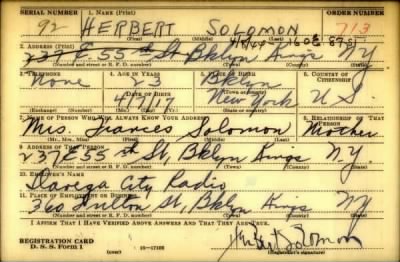 SERIAL NUMBER 1. NAME (Print) ORDER NUMBER
92 HERBERT SOLOMON 713
(First) (Middle) (Last)
2. ADDRESS (Print)
237 E. 55th St, Bklyn Kings NY
(Number and street or R. F. D. number) (Town) (County) (State)
3. TELEPHONE 4. AGE IN YEARS 5. PLACE OF BIRTH 6. COUNTRY OF CITIZENSHIP
None 23 Bklyn
DATE OF BIRTH (Town or county)
4/7/17 New York U.S.
(Exchange) (Number) (Mo.) (Day) (Yr.) (State or country)
7. NAME OF PERSON WHO WILL ALWAYS KNOW YOUR ADDRESS 8. RELATIONSHIP OF THAT PERSON
Mrs. Frances Solomon Mother
(Mr., Mrs., Miss) (First) (Middle) (Last)
9. ADDRESS OF THAT PERSON
237 E 55th St, Bklyn Kings NY.
(Number and street or R. F. D. number) (Town) (County) (State)
10. EMPLOYER'S NAME
Davega City Radio
11. PLACE OF EMPLOYMENT OR BUSINESS
360 Fulton St, Bklyn Kings NY
(Number and street or R. F. D. number) (Town) (County) (State)
I AFFIRM THAT I HAVE VERIFIED ABOVE ANSWERS AND THAT THEY ARE TRUE.
REGISTRATION CARD
D. S. S. Form 1 (over) 16—17105 Herbert Solomon
(Registrant's signature)